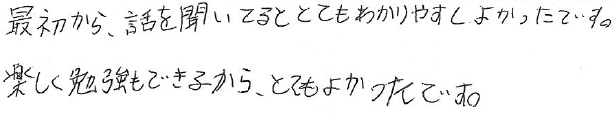 最初から、話を聞いてるととてもわかりやすしよかったです。
楽しく勉強もできるから、とてもよかったです。